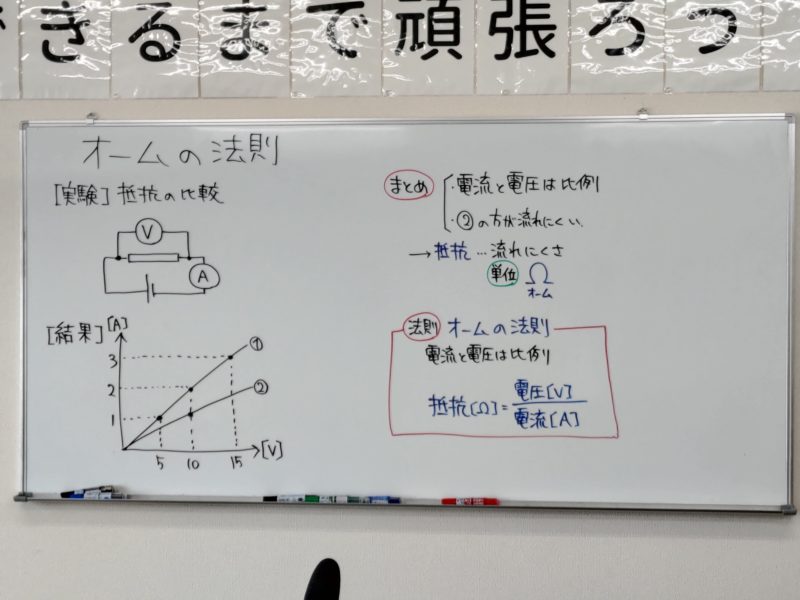 きるまで頑張ろう
オームの法則
[実験] 抵抗の比較
V
A
[結果]
[A]
3
2
1
5 10 15
[V]
①
②
まとめ
・電流と電圧は比例
・②の方が流れにくい.
→抵抗…流れにくさ
単位 Ω
オーム
法則 オームの法則
電流と電圧は比例
抵抗[Ω]=電圧[V]
電流[A]